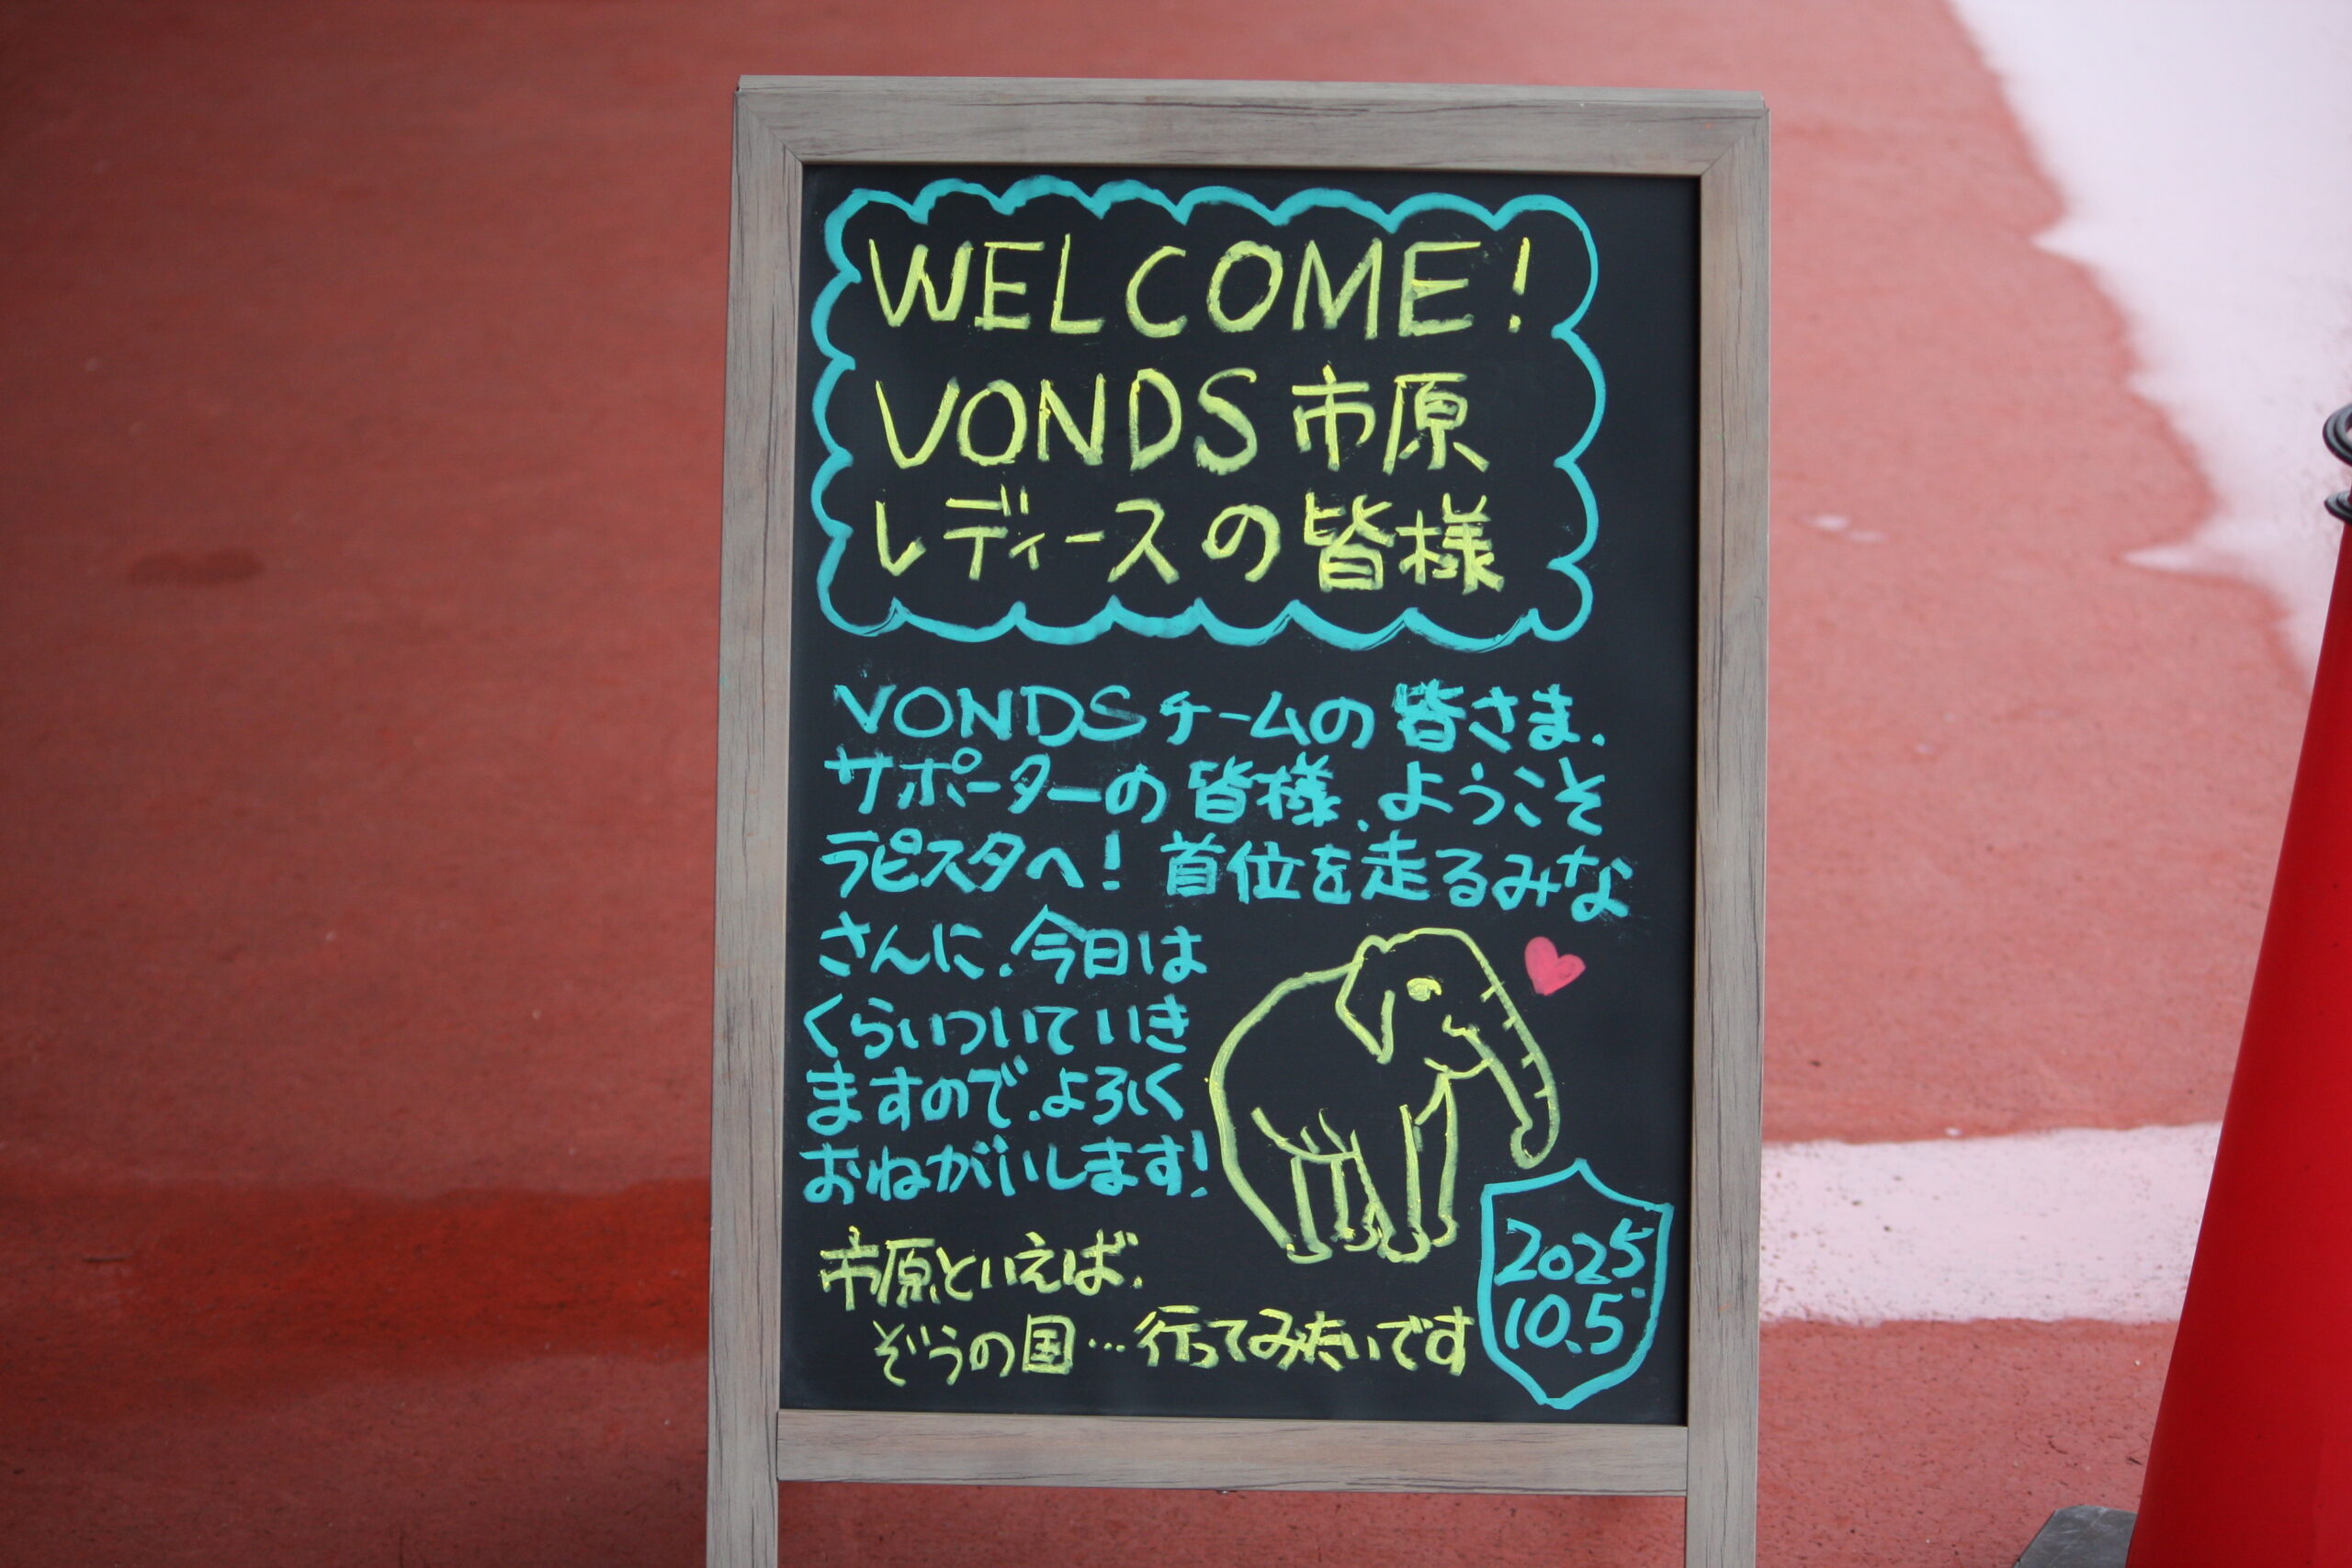 WELCOME!
VONDS 市原
レディースの皆様
VONDSチームの皆さま、
サポーターの皆様、ようこそ
ラピスタへ! 首位を走るみな
さんに、今日は
くらいついていき
ますので、よろしく
おねがいします!
市原といえば、
ぞうの国…行ってみたいです
2025
10.5